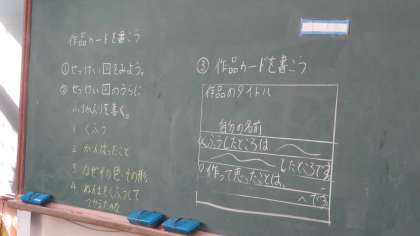 作品カードを書こう
①せっけい図をみよう。
②せっけい図のうらに
ふりかえりを書く。
1 くふう
2 がんばったこと
3 なぜその色、その形
4
つかったのか
③ 作品カードを書こう
作品のタイトル
自分の名前
くふうしたところは
したところです。
作って思ったことは、
です。